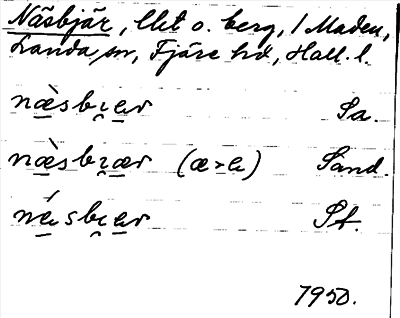 Näsbjär, llet o. berg, / Maden,
Landa sn, Fjäre hd, Hall. l.
næ̀sbɪ̯ær Sa.
næ̀sbɪ̯ær (æ>a) Sand.
nǽsbɪ̯ær St.
1950.